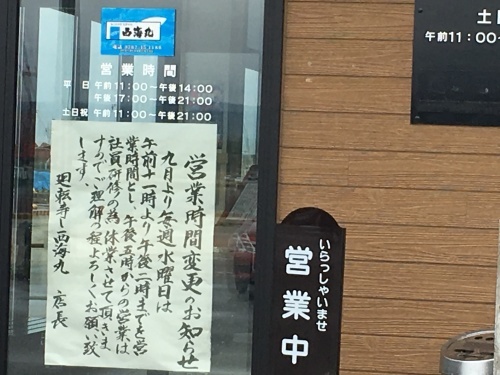 西海丸
営業時間
平日 午前11:00〜午後14:00
午後17:00〜午後21:00
土日祝 午前11:00〜午後21:00
営業時間変更のお知らせ
九月より毎週水曜日は
午前十一時より午後二時までを営
業時間とし、午後五時からの営業は
社員研修の為休業させて頂きま
すのでご理解の程よろしくお願い致
します。
廻転寿し西海丸 店長
いらっしゃいませ
営業中
土日
午前11:00〜